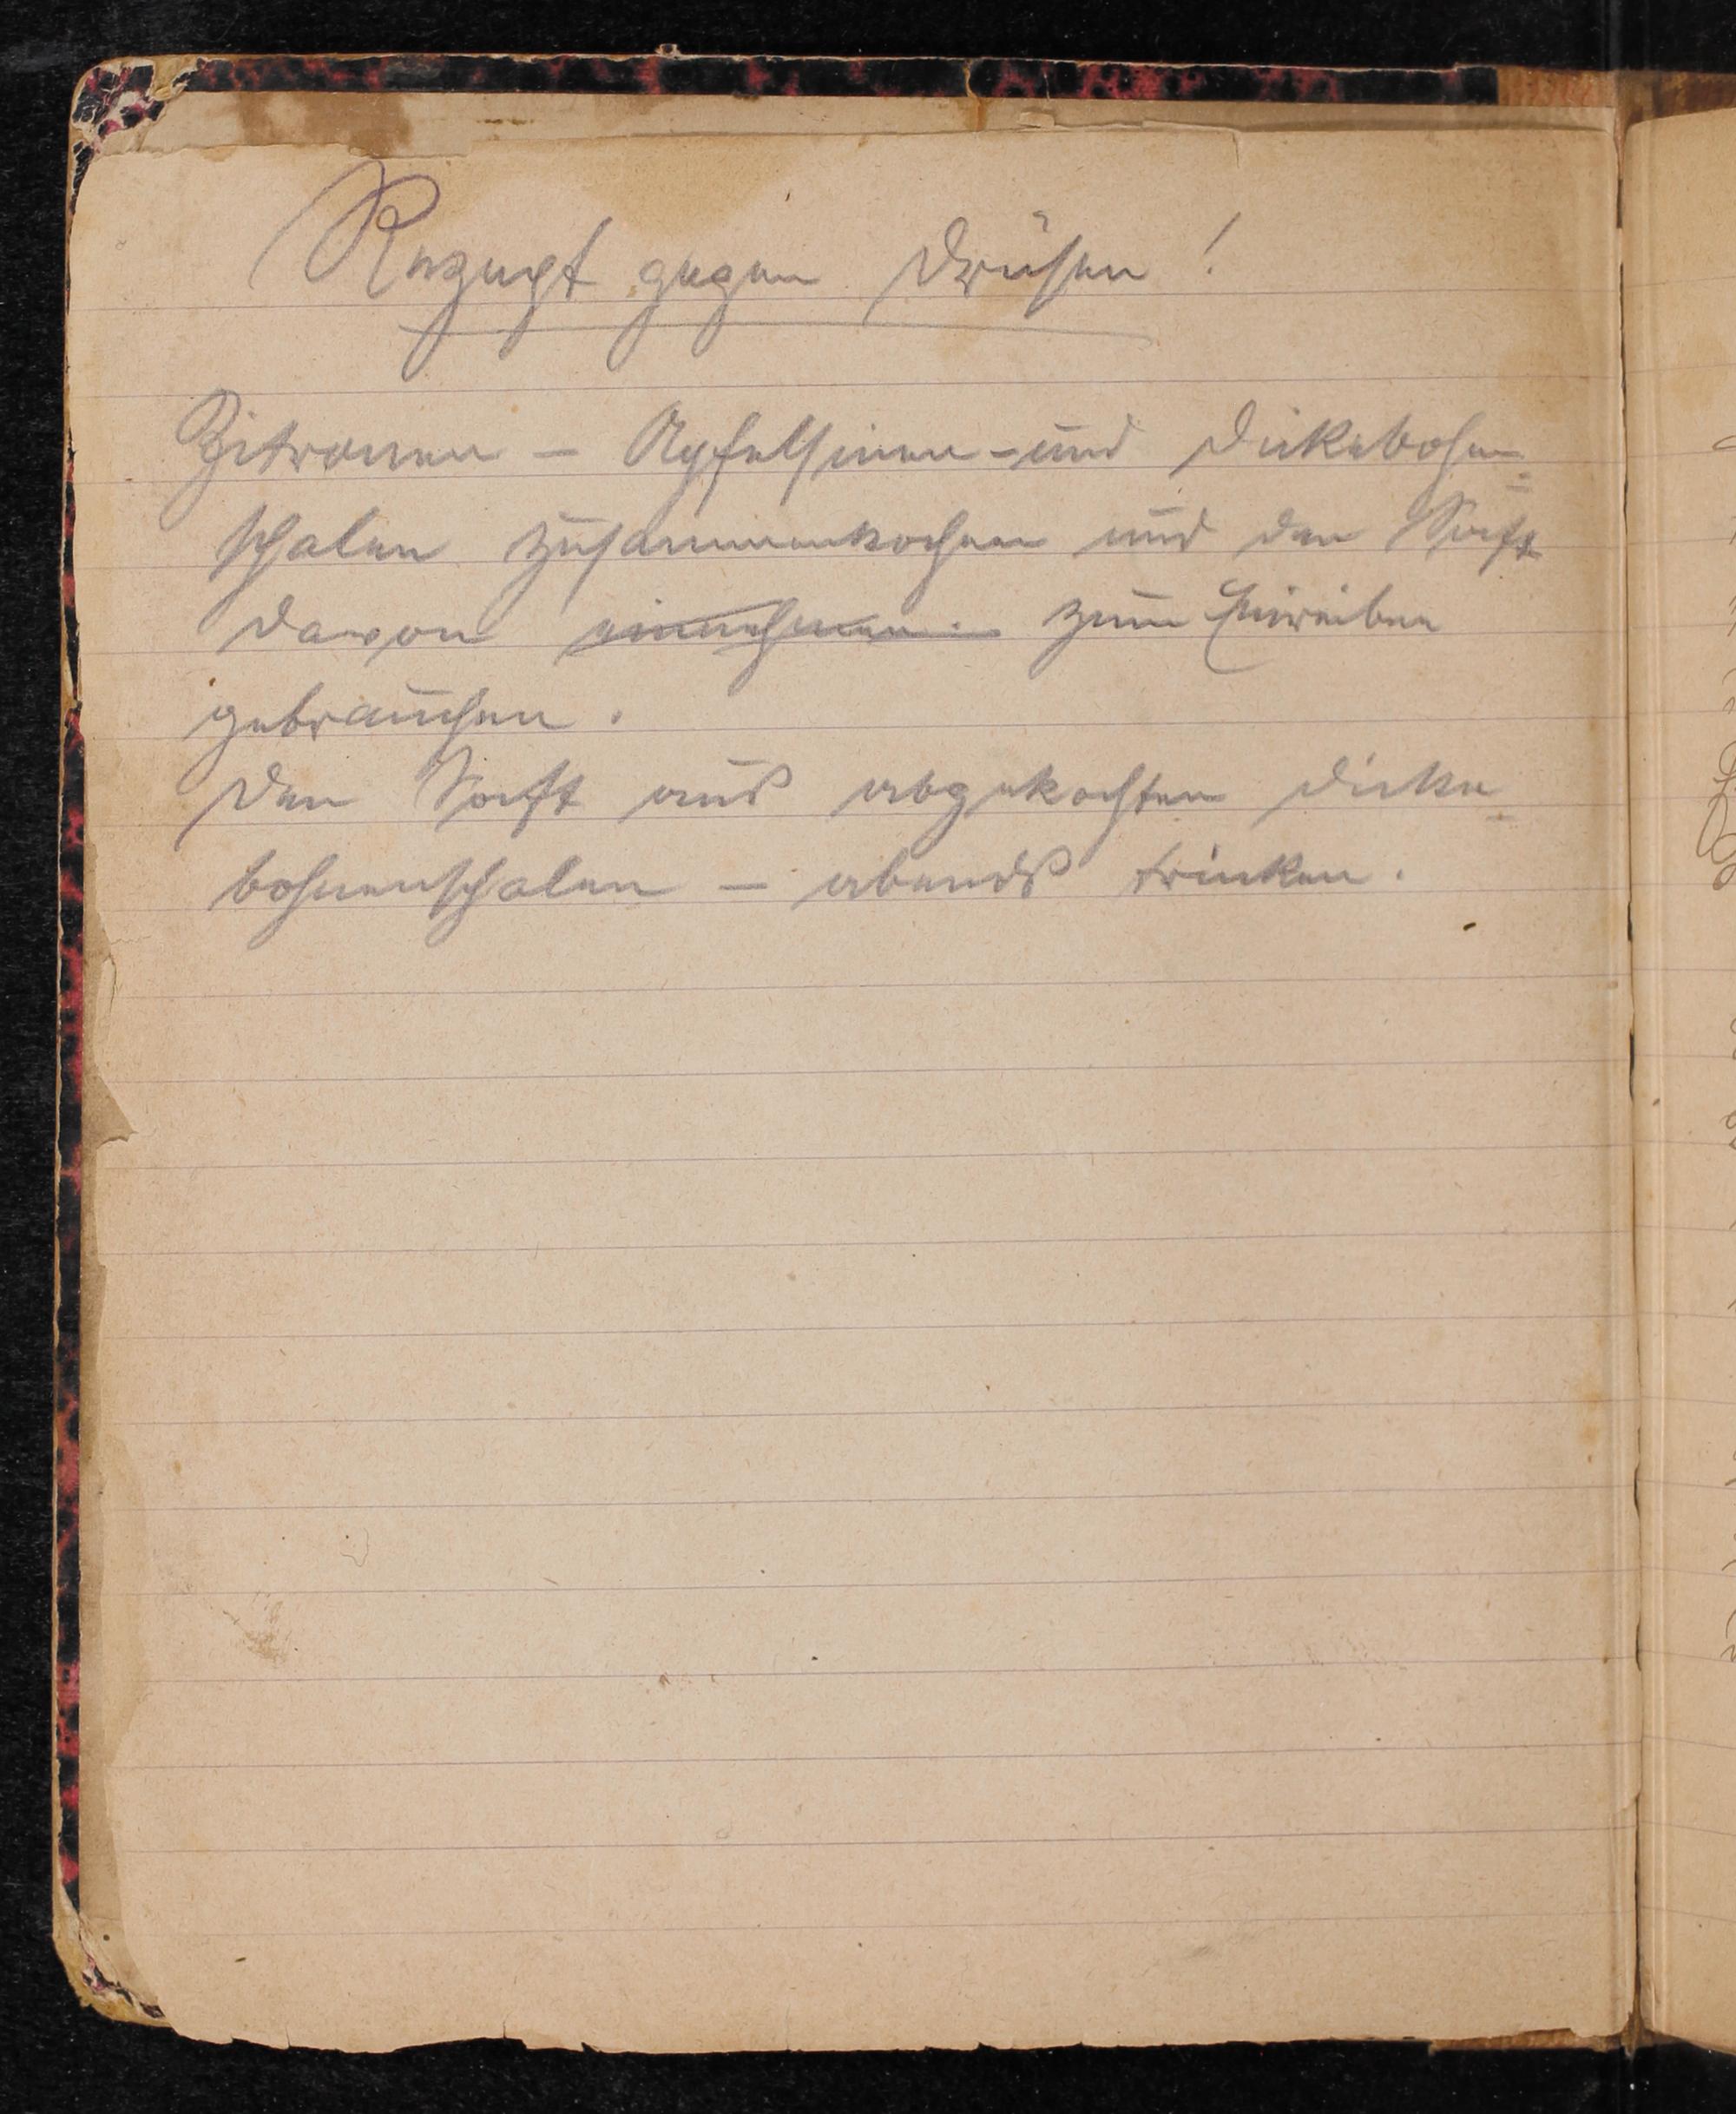 Rezept gegen Drüsen!
Zitronen - Apfelsinen - und Dickebohnen-
schalen zusammenkochen und den Saft
davon einnehmen. zum Einreiben
gebrauchen.
Den Saft aus abgekochten dicke-
bohnenschalen - abends trinken.